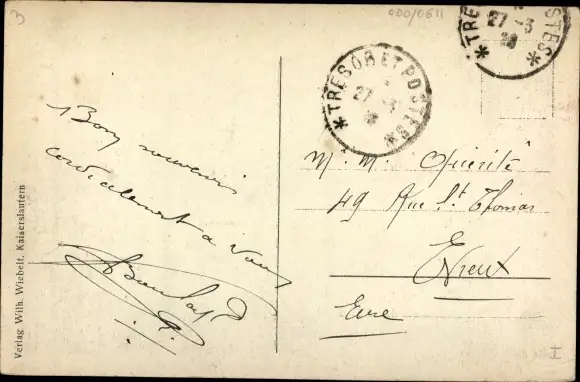 3
000/0611
* TRESOR ET POSTES *
27 - 3
* TRESOR ET POSTES *
27 - 3
Bon souvenir
cordialement à vous
Mr. M.
49 Rue St Thomas
Evreux
Eure
Verlag Wilh. Wiebelt, Kaiserslautern
I